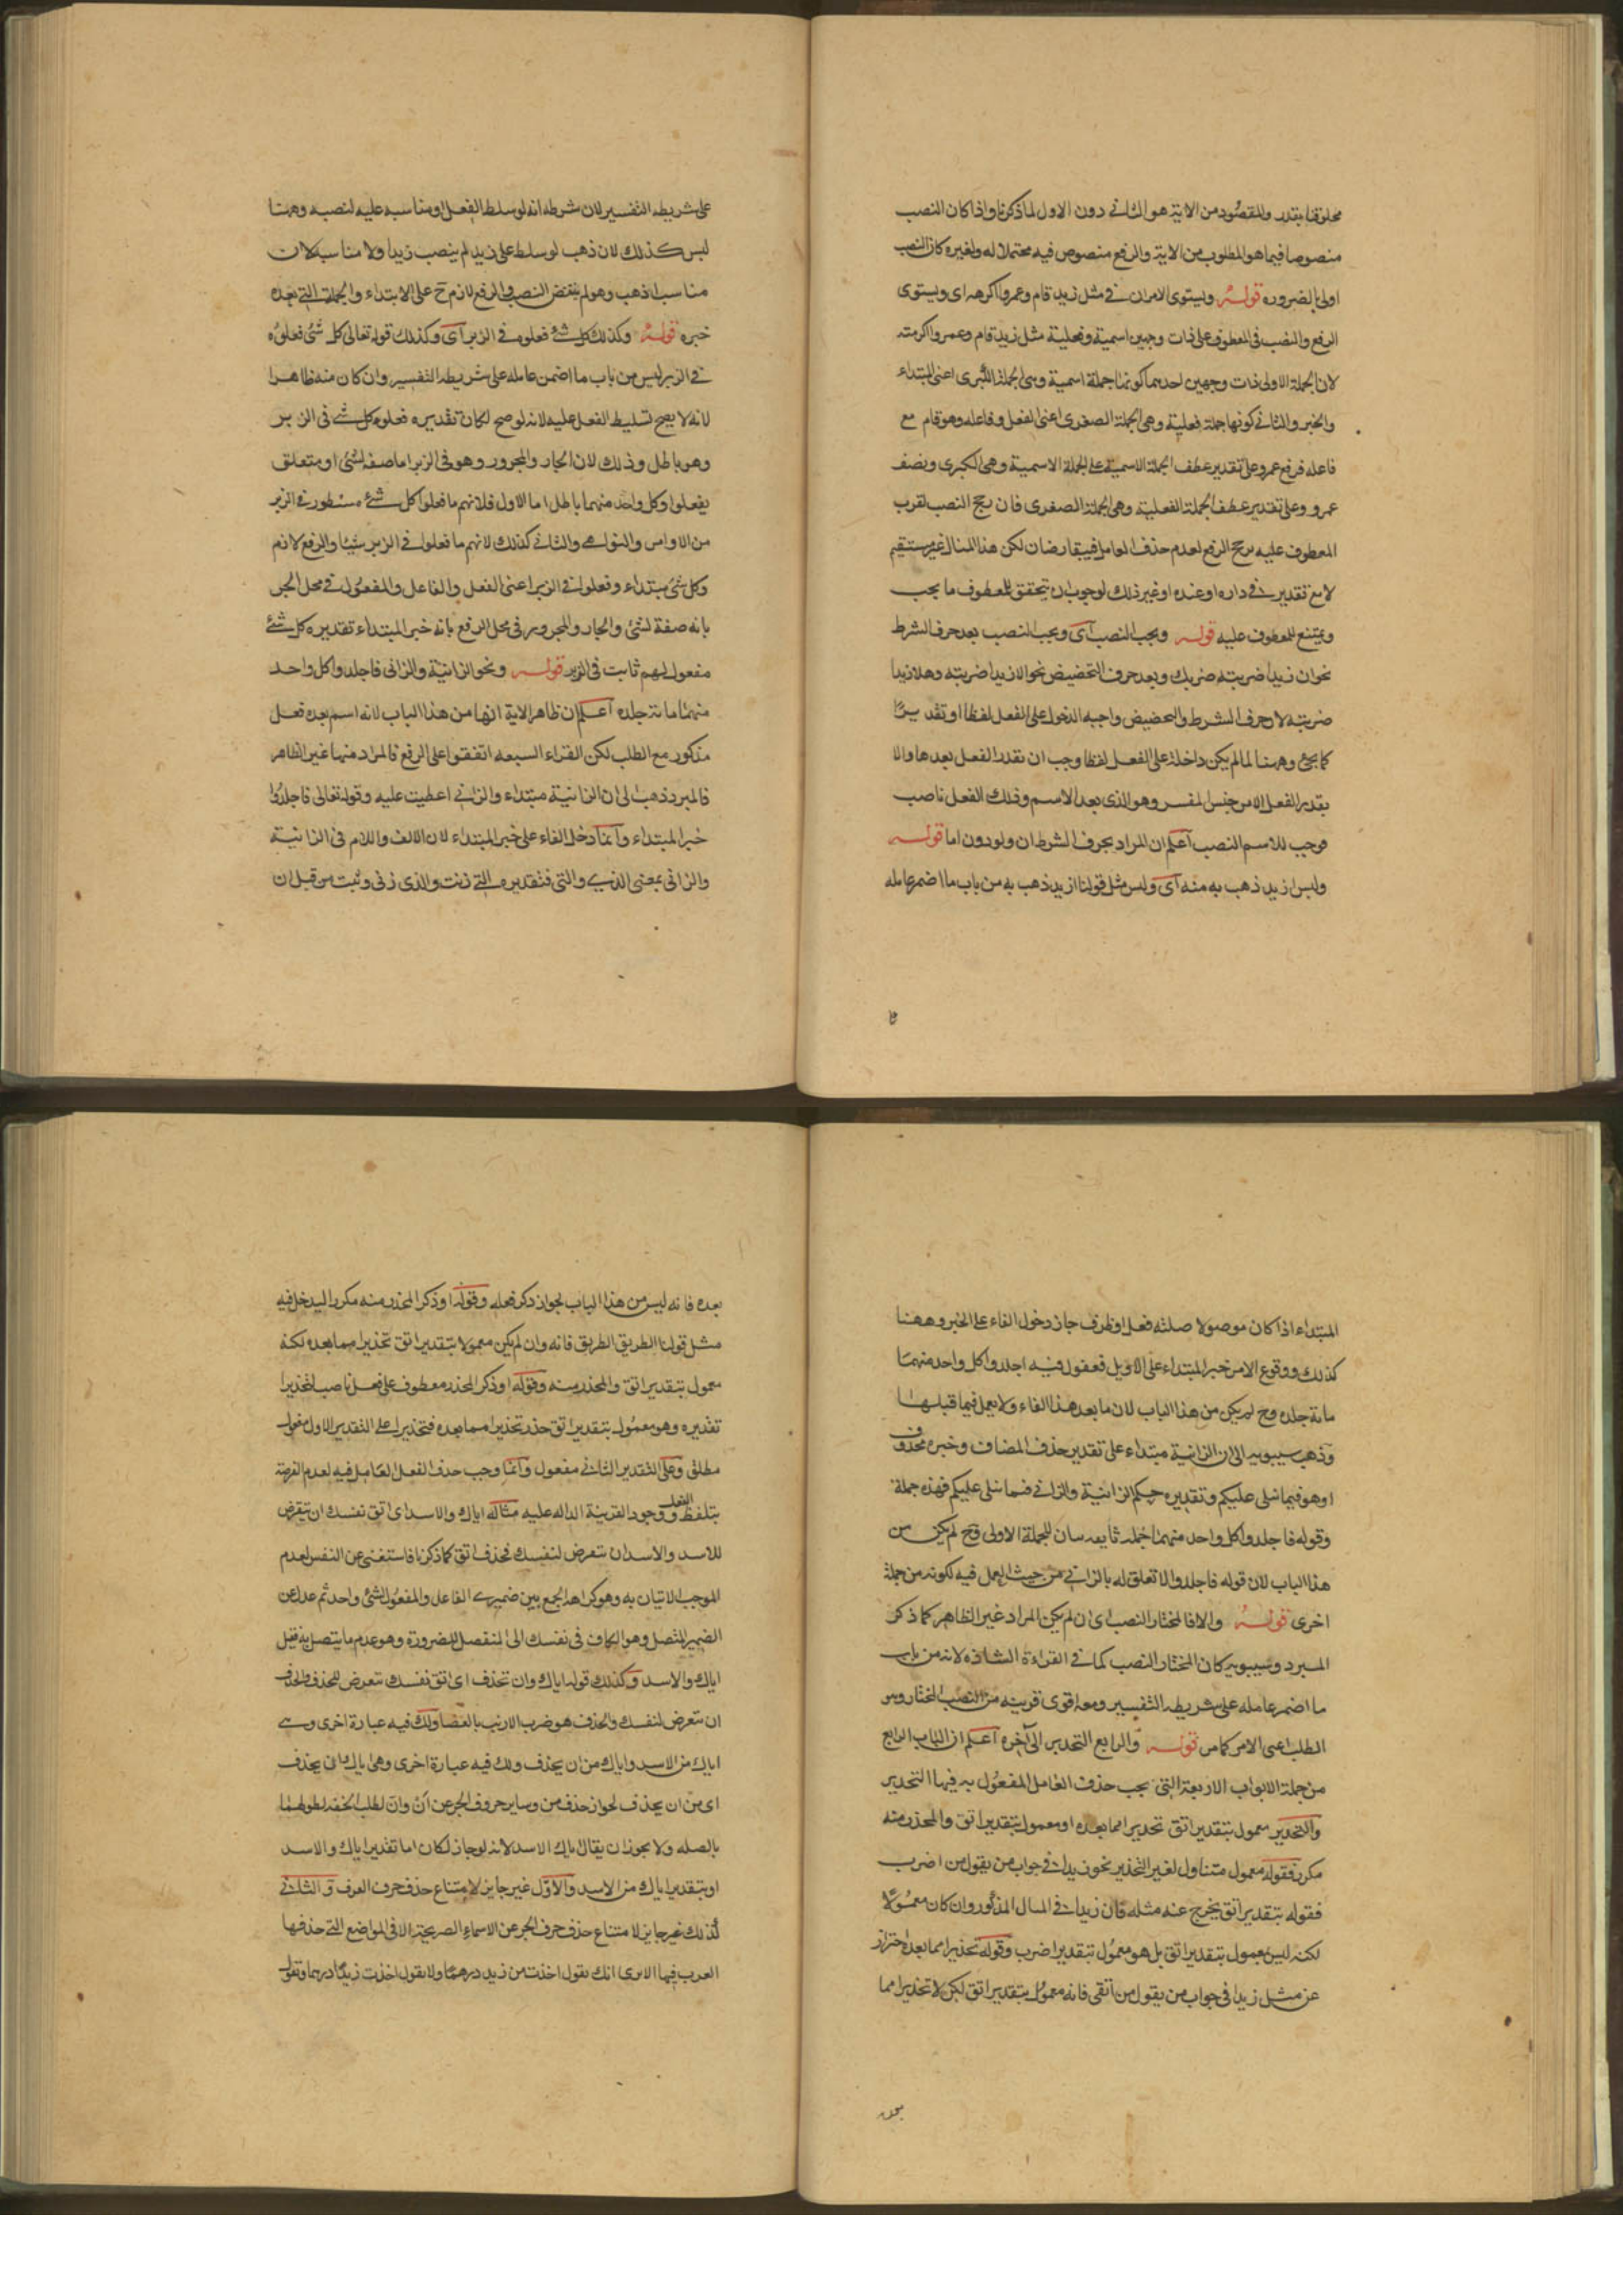 مخلوقنا بقدر والمقصود من الاية هو الثاني دون الاول لما ذكرنا واذا كان النصب
منصوصا فيما هو المطلوب من الاية والرفع منصوص فيه محتملا له ولغيره كان النصب
اولى بالضرورة قوله ويستوى الامران في مثل زيد قام وعمروا اكرمه اى ويستوى
الرفع والنصب في المعطوف على ذات وجهين اسمية وفعلية مثل زيد قام وعمروا اكرمته
لان الجملة الاولى ذات وجهين احدهما كونها جملة اسمية وهى الجملة الكبرى اعنى المبتداء
والخبر والثاني كونها جملة فعلية وهى الجملة الصغرى اعنى الفعل وفاعله وهو قام مع
فاعله فرفع عمرو على تقدير عطف الجملة الاسمية على الجملة الاسمية وهى الكبرى ونصف
عمرو وعلى تقدير عطف الجملة الفعلية وهى الجملة الصغرى فان رجح النصب لقرب
المعطوف عليه رجح الرفع لعدم حذف العامل فيتعارضان لكن هذا المثال غير مستقيم
لا مع تقدير في داره او عنده او غير ذلك لوجوب ان يتحقق للمعطوف ما يجب
ويمتنع للمعطوف عليه قوله ويجب النصب آى ويجب النصب بعد حرف الشرط
نحو ان زيدا ضربته ضربك وبعد حرف التحضيض نحو الا زيدا ضربته وهلا زيدا
ضربته لان حرف الشرط والتحضيض واجبه الدخول على الفعل لفظا او تقديرًا
كما يجئ وههنا لما لم يكن داخلة على الفعل لفظا وجب ان نقدر الفعل بعدها والا
بقدر الفعل الا من جنس المفسر وهو الذى بعد الاسم وذلك الفعل ناصب
فوجب للاسم النصب آعلم ان المراد بحرف الشرط ان ولو دون اما قوله
وليس ازيد ذهب به منه آى وليس مثل قولنا ازيد ذهب به من باب ما اضمر عامله
على شريطه التفسير لان شرطه انه لو سلط الفعل او مناسبه عليه لنصبه وههنا
ليس كذلك لان ذهب لو سلط على زيد لم ينصب زيدا ولا مناسبه لان
مناسب اذهب وهو لم يقتض النصب فالرفع لازم ح على الابتداء والجملة التى بعده
خبره قوله وكذلك كل شئ فعلوه في الزبر آى وكذلك قوله تعالى كل شئ فعلوه
في الزبر ليس من باب ما اضمر عامله على شريطه التفسير وان كان منه ظاهرا
لانه لا يصح تسليط الفعل عليه لانه لو صح لكان تقديره فعلوه كل شئ في الزبر
وهو باطل وذلك لان الجار والمجرور وهو فى الزبر اما صفة لشئ او متعلق
بفعلوا وكل واحد منهما باطل اما الاول فلانهم ما فعلوا كل شئ مسطور في الزبر
من الاوامر والنواهي والثاني كذلك لانهم ما فعلوا في الزبر شيئا والرفع لازم
وكل شئ مبتداء وفعلوه في الزبر اعنى الفعل والفاعل والمفعول في محل الجر
بانه صفة لشئ والجار والمجرور في محل الرفع بانه خبر المبتداء تقديره كل شئ
مفعول لهم ثابت فى الزبر قوله ونحو الزانية والزانى فاجلدوا كل واحد
منهما مائة جلده آعلم ان ظاهر الاية انها من هذا الباب لانه اسم بعده فعل
مذكور مع الطلب لكن القراء السبعه اتفقوا على الرفع فالمراد منها غير الظاهر
فالمبرد ذهب الى ان الزانية مبتداء والزاني اعطيت عليه وقوله تعالى فاجلدوا
خبر المبتداء وآنما دخل الفاء على خبر المبتداء لان الالف واللام فى الزانية
والزانى بمعنى الذى والتى فتقديره التي زنت والذى زنى وثبت من قبل ان
المبتداء اذا كان موصولا صلته فعل او ظرف جاز دخول الفاء على الخبر وههنا
كذلك ووقوع الامر خبر المبتداء على التاويل فمقول فيه اجلدوا كل واحد منهما
مائة جلده وح لم يكن من هذا الباب لان ما بعد هذا الفاء ولا يعمل فيما قبلها
وذهب سيبويه الى ان الزانية مبتداء على تقدير حذف المضاف وخبره محذوف
او هو فيما يتلى عليكم وتقديره حكم الزانية والزاني فيما يتلى عليكم فهذه جملة
وقوله فاجلدوا كل واحد منهما جملة ثانيه بيان للجملة الاولى وح لم يكن من
هذا الباب لان قوله فاجلدوا لا تعلق له بالزاني من حيث العمل فيه لكونه من جملة
اخرى قوله والا فالمختار النصب اى ان لم يكن المراد غير الظاهر كما ذكر
المبرد وسيبويه كان المختار النصب كما في القراءة الشاذه لانه من باب
ما اضمر عامله على شريطه التفسير ومعه اقوى قرينه من النصب المختار وهو
الطلب اعنى الامر كما مر قوله والرابع التحذير الى آخره آعلم ان الباب الرابع
من جملة الابواب الاربعة التى يجب حذف العامل المفعول به فيها التحذير
والتحذير معمول بتقدير اتق تحذيرا مما بعده او معمول بتقدير اتق والمحذر منه
مكرر فقوله معمول متناول لغير التحذير نحو زيدا في جواب من يقول من اضرب
فقوله بتقدير اتق يخرج عنه مثله فان زيدا في المثال المذكور وان كان معمولًا
لكنه ليس بمعمول بتقدير اتق بل هو معمول بتقدير اضرب وقوله تحذيرا مما بعده احتراز
عن مثل زيدا فى جواب من يقول من اتقى فانه معمول بتقدير اتق لكن لا تحذيرا مما
بعده فانه ليس من هذا الباب لجواز ذكر فعله وقوله او ذكر المحذر منه مكررا ليدخل فيه
مثل قولنا الطريق الطريق فانه وان لم يكن معمولا بتقدير اتق تحذيرا مما بعده لكنه
معمول بتقدير اتق والمحذر منه وقوله او ذكر المحذر معطوف على فعل ناصب لتحذيرا
تقديره وهو معمول بتقدير اتق حذر تحذيرا مما بعده فتحذيرا على التقدير الاول مفعول
مطلق وعلى التقدير الثاني مفعول وآنما وجب حذف الفعل العامل فيه لعدم الفرصة
بتلفظ الفعل ووجود القرينة الداله عليه مثاله اياك والاسد اى اتق نفسك ان يتعرض
للاسد والاسد ان يتعرض لنفسك فحذف اتق كما ذكرنا فاستغنى عن النفس لعدم
الموجب الاتيان به وهو كراهة الجمع بين ضميرى الفاعل والمفعول لشئ واحد ثم عدل عن
الضمير المتصل وهو الكاف فى نفسك الى المنفصل للضرورة وهو عدم ما يتصل به فقيل
اياك والاسد وكذلك قوله اياك وان تحذف اى اتق نفسك يتعرض للحذف والحذف
ان يتعرض لنفسك والحذف هو ضرب الارنب بالعصا ولك فيه عبارة اخرى وهى
اياك من الاسد واياك من ان يحذف ولك فيه عبارة اخرى وهى اياك ان يحذف
اى من ان يحذف لجواز حذف من وساير حروف الجر عن أن وان لطلب الخفه لطولهما
بالصله ولا يجوز ان يقال اياك الاسد لانه لو جاز لكان اما تقدير اياك والاسد
او بتقدير اياك من الاسد والاول غير جايز لامتناع حذف حرف العرف و الثاني
كذلك غير جايز لامتناع حذف حرف الجر عن الاسماء الصريحة الا فى المواضع التي حذفها
العرب فيها الا ترى انك تقول اخذت من زيد درهما ولا تقول اخذت زيدا درهما وتقول